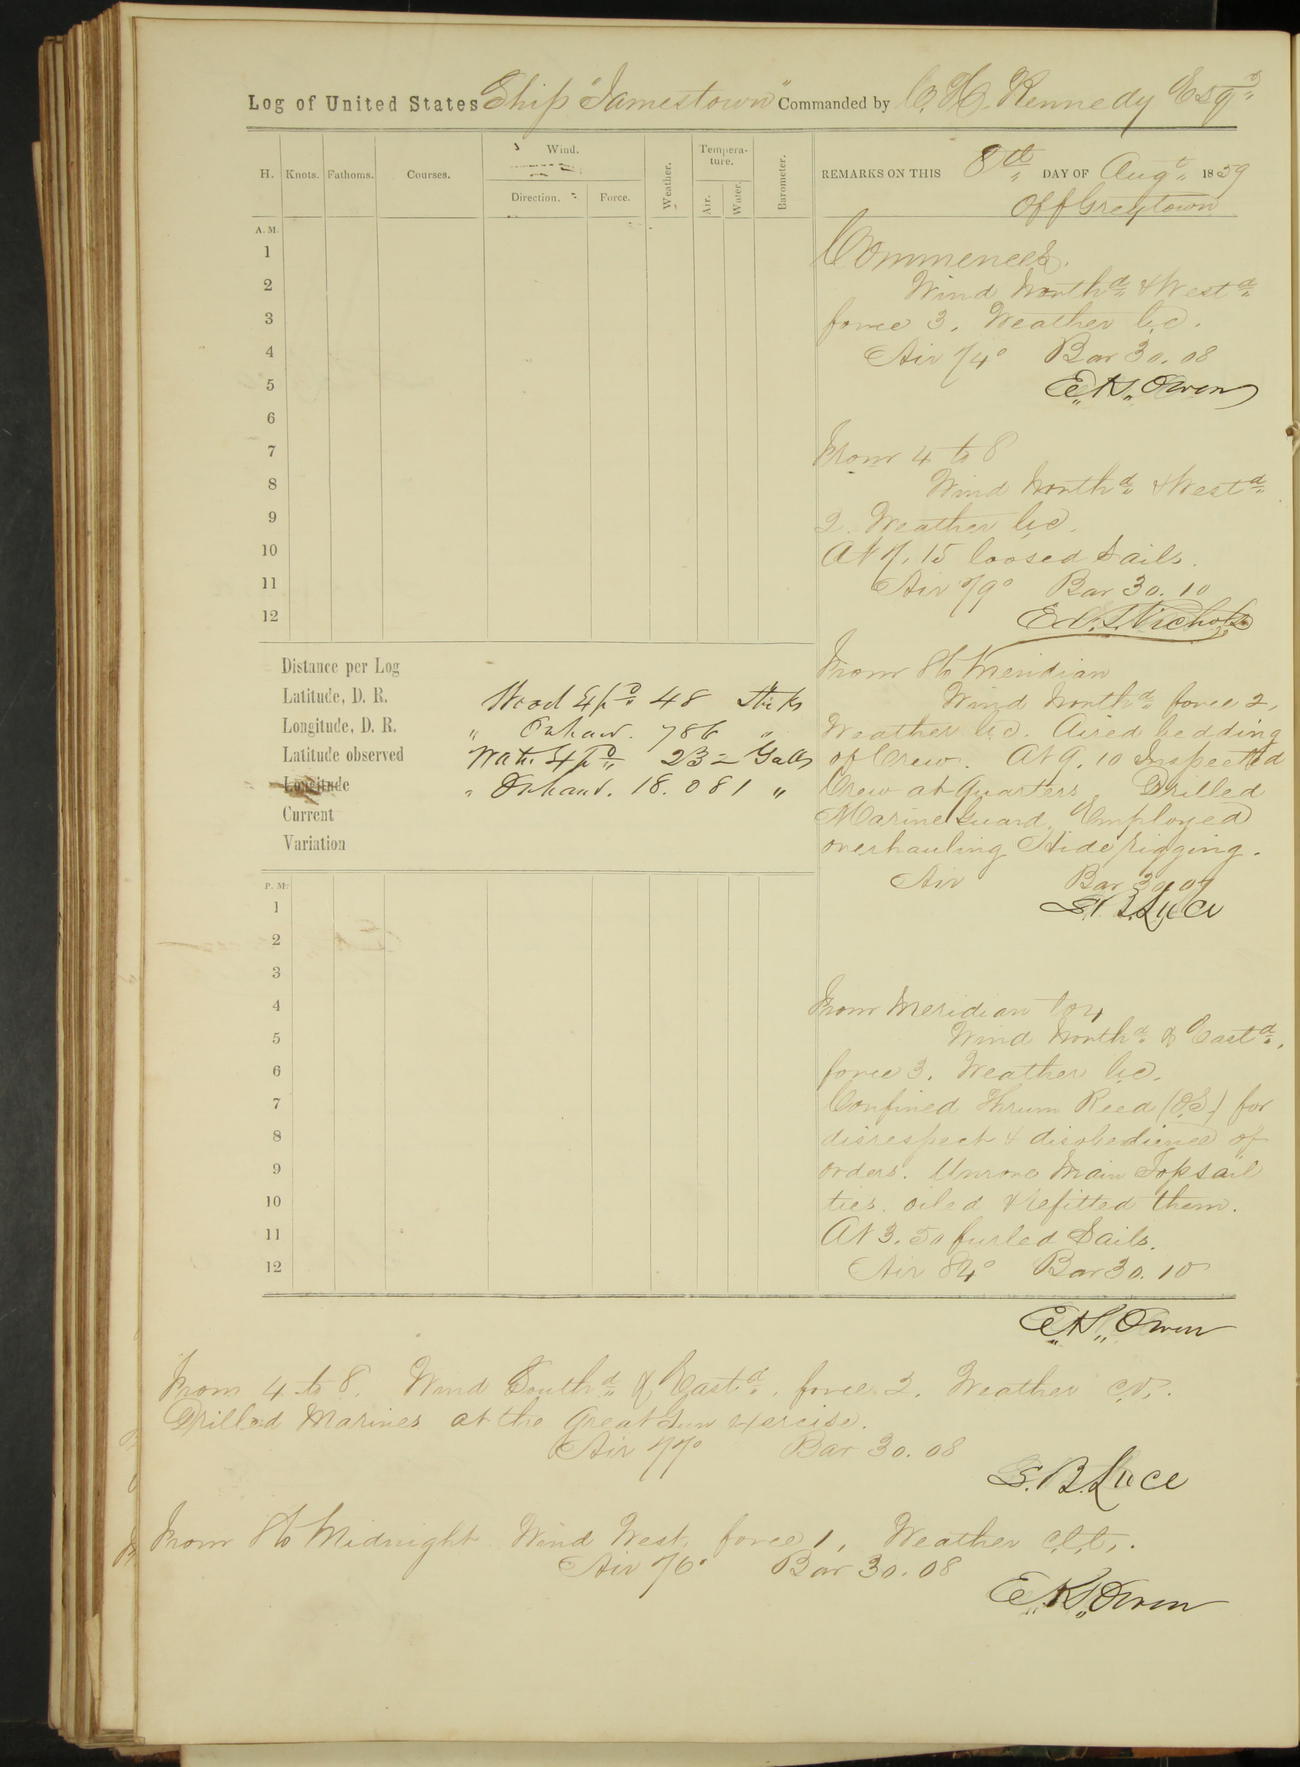 Log of United States Ship "Jamestown" Commanded by C. H. Kennedy Esqr
H. Knots. Fathoms. Courses. Wind. Direction. Force. Weather. Temperature. Air. Water. Barometer.
REMARKS ON THIS 8th DAY OF Augt 1859
Off Greytown
A.M.
1
2
3
4
5
6
7
8
9
10
11
12
Commences.
Wind Northd & Westd
force 3. Weather b.c.
Air 74° Bar 30.08
E. K. Owen
From 4 to 8
Wind Northd & Westd
2. Weather b.c.
At 7.15 loosed Sails.
Air 79° Bar 30.10
Ed. T. Nichols
From 8 to Meridian
Wind Northd force 2,
Weather b.c. Aired bedding
of Crew. At 9.10 Inspected
Crew at Quarters. Drilled
Marine Guard. Employed
overhauling Hide rigging.
Air Bar 30.07
S. B. Luce
Distance per Log
Latitude, D. R.
Longitude, D. R.
Latitude observed
Longitude
Current
Variation
Wood Expd 48 Sticks
" Onhand. 786 "
Wat. Expd 23= Galls
" Onhand. 18.081 "
P. M.
1
2
3
4
5
6
7
8
9
10
11
12
From Meridian to 4
Wind Northd & Eastd.
force 3. Weather b.c.
Confined Reed (O.S.) for
disrespect & disobedience of
orders. Unrove Main Topsail
ties. oiled & refitted them.
At 3.50 furled Sails.
Air 84° Bar 30.10
E. K. Owen
From 4 to 8. Wind Southd & Eastd. force 2. Weather
Drilled Marines at the Great Gun exercise.
Air 77° Bar 30.08
S. B. Luce
From 8 to Midnight Wind West, force 1, Weather
Air 76° Bar 30.08
E. K. Owen